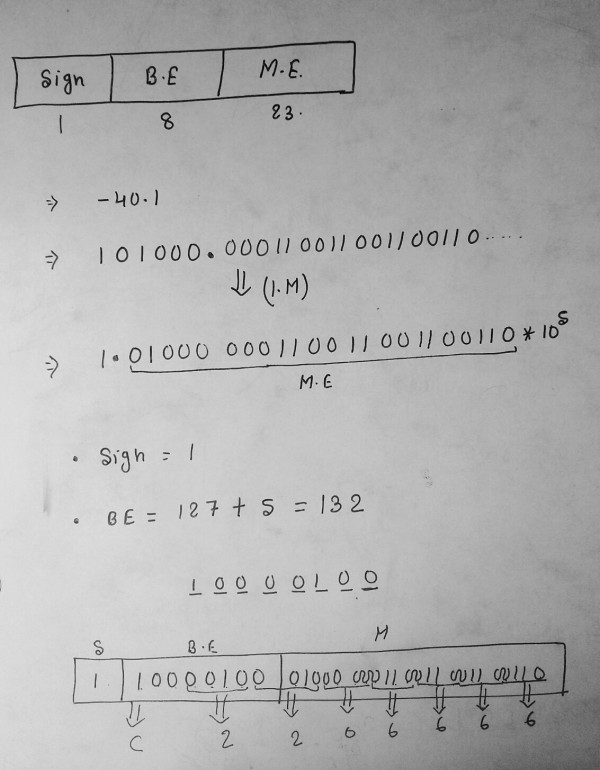 Sign B.E M.E.
1 8 23.
⇒ -40.1
⇒ 101000.000110011001100110.....
⇓ (1.M)
⇒ 1.01000 000110011001100110 * 10^5
M.E
• Sign = 1
• BE = 127 + 5 = 132
1 0 0 0 0 1 0 0
S B.E M
1 10000100 01000 00011 0011 0011 00110
C 2 2 0 6 6 6 6